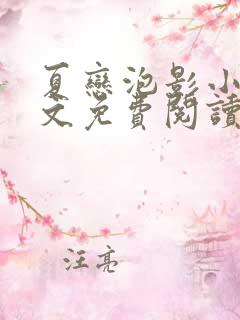 夏戀泡影小
文免費閱讀
汪亮